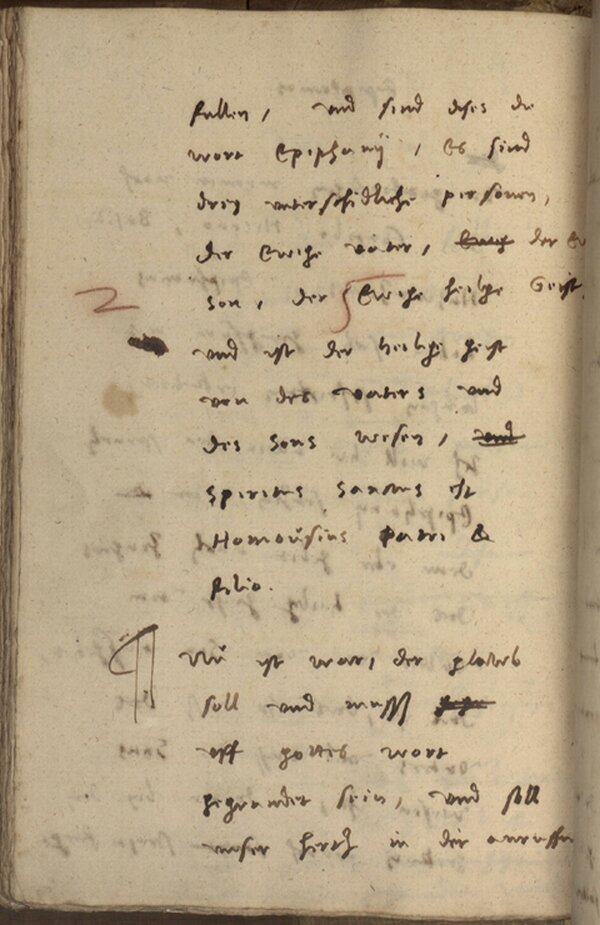 fallen, und sind dises die
wort Epiphanij, Es sind
drey unterschidliche personen,
der Ewige vater, der
son, der Ewige heilige Geist,
und ist der heilige geist
von des vaters und
des sons wesen, und
spiritus sanctus est
Homousius patri &
filio.
¶ Nu ist war, der glawb
soll und muss
uff gottes wort
gegrundet sein, und soll
unser hertz in der anruffu